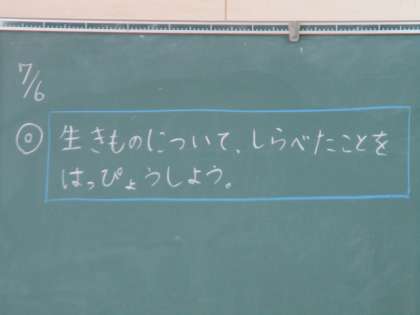 7/6
◎ 生きものについて、しらべたことを
はっぴょうしよう。